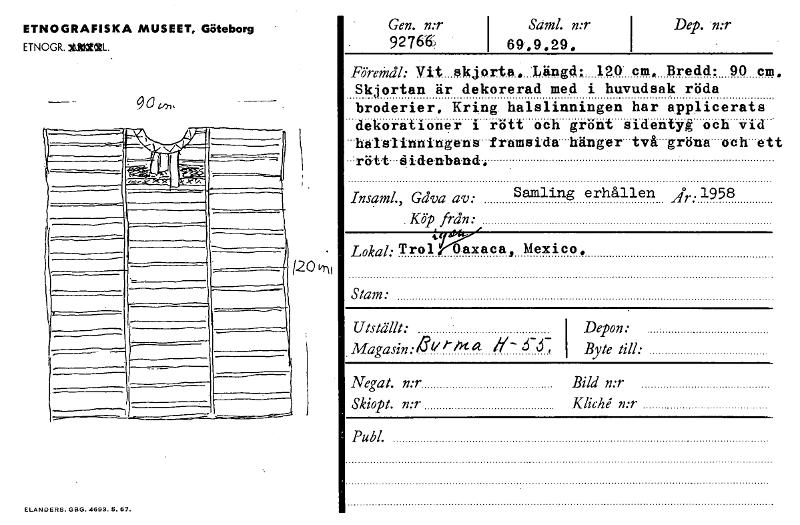 ETNOGRAFISKA MUSEET, Göteborg
ETNOGR. L.
90 cm
120 cm
ELANDERS, GBG. 4693. 5. 67.
Gen. n:r Saml. n:r Dep. n:r
92766 69.9.29.
Föremål: Vit skjorta. Längd: 120 cm. Bredd: 90 cm.
Skjortan är dekorerad med i huvudsak röda
broderier. Kring halslinningen har applicerats
dekorationer i rött och grönt sidentyg och vid
halslinningens framsida hänger två gröna och ett
rött sidenband.
Insaml., Gåva av: Samling erhållen År: 1958
Köp från:
igen
Lokal: Trol. Oaxaca, Mexico.
Stam:
Utställt: Depon:
Magasin: Burma H-55. Byte till:
Negat. n:r Bild n:r
Skiopt. n:r Kliché n:r
Publ.